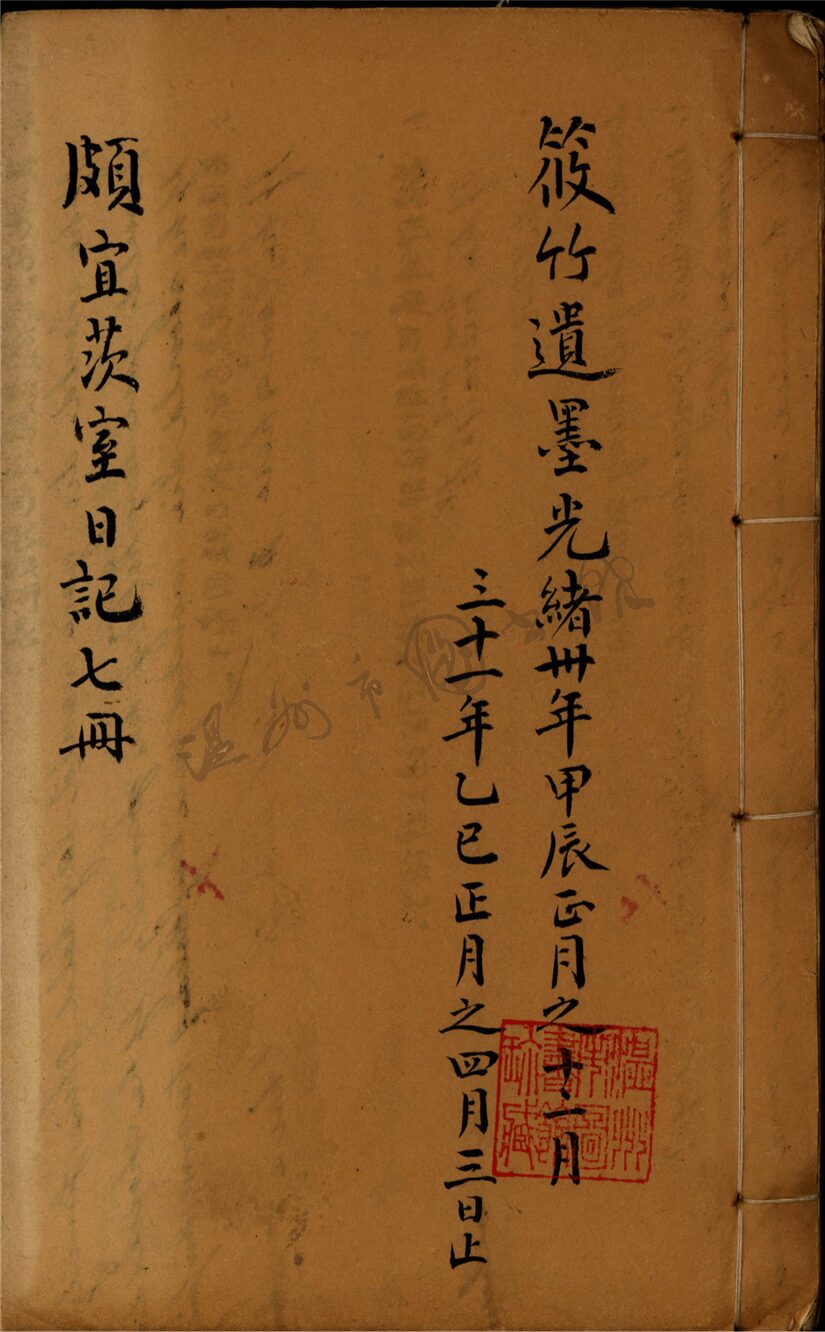 筱竹遺墨光緒卅年甲辰正月之十二月
三十一年乙巳正月之四月三日止
頗宜茨室日記七冊
温州市圖書館
温州市圖書館珍藏